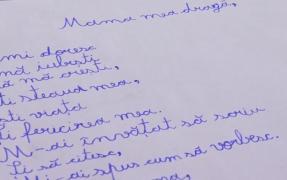 Mama mea dragă,
mi doresc
mă iubești
să mă crești,
ti steaua mea,
ti viața
ti fericirea mea.
M-ai învățat să scriu
Și să citesc,
Mi-ai spus cum să vorbesc.